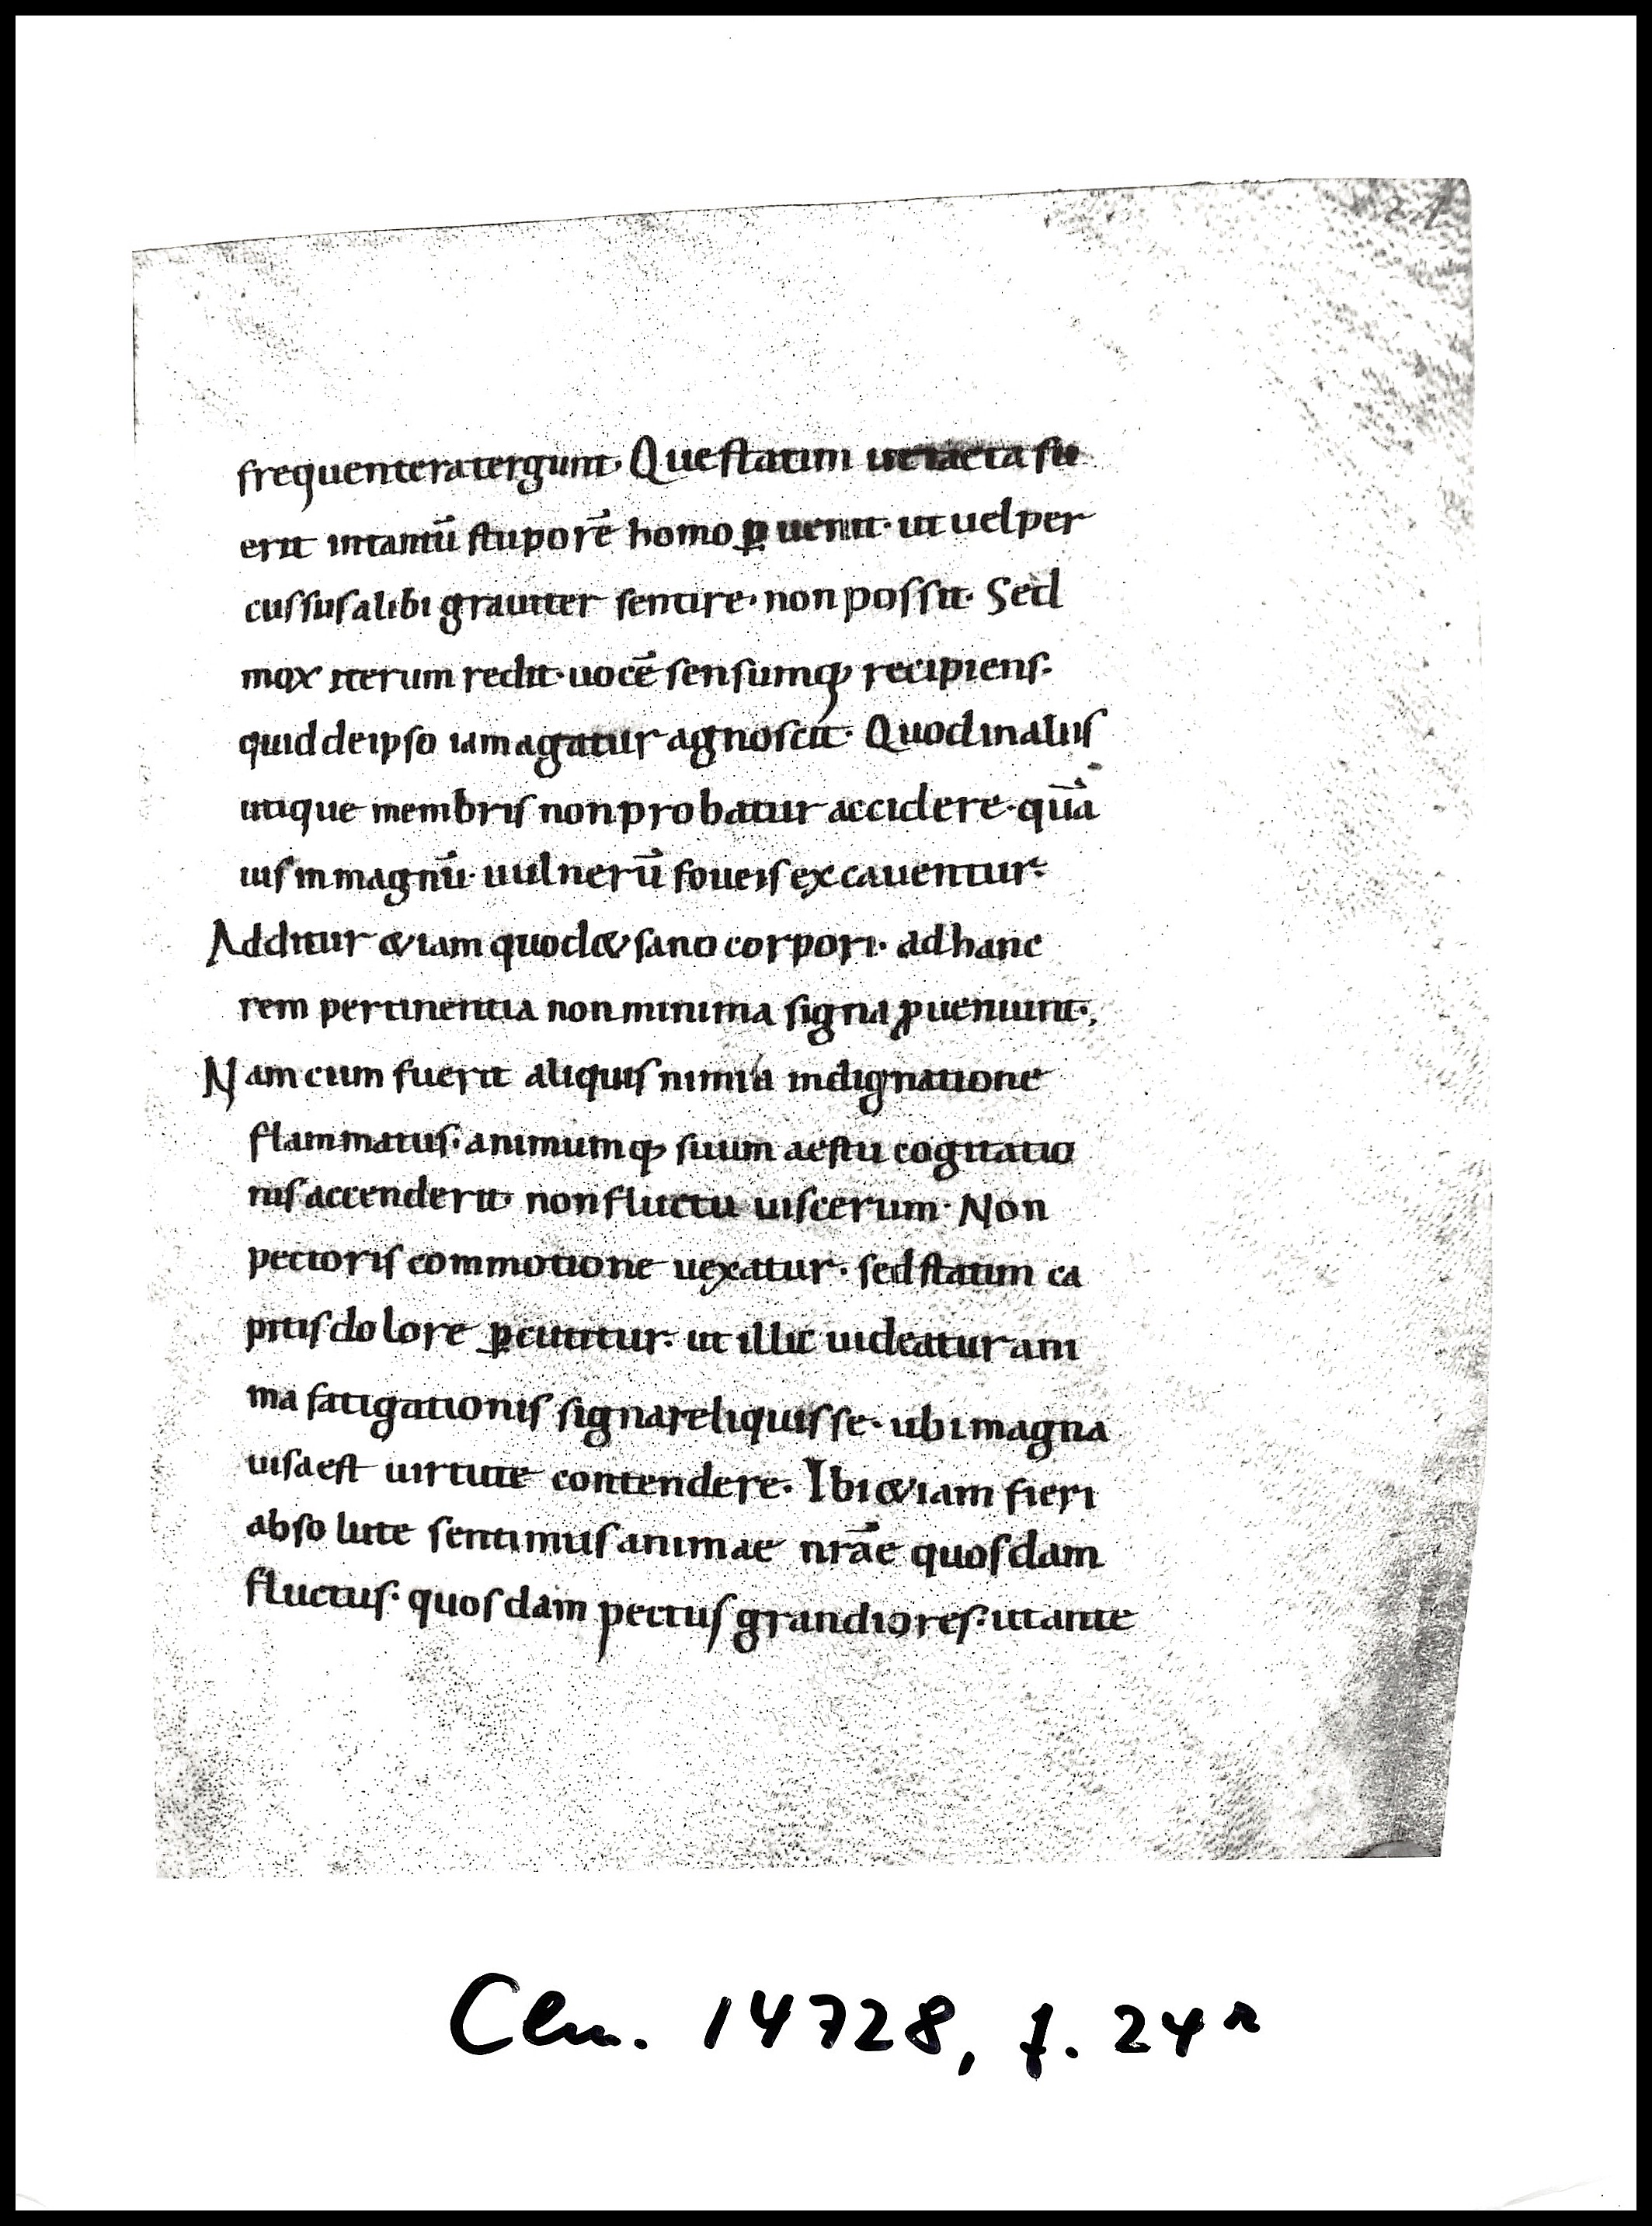 frequenter atergunt. Que statim ut tacta fu
erit intantū stuporē homo ꝑuenit· ut uel per
cussus alibi grauiter sentire· non possit· Sed
mox iterum redit· uocē sensumq; recipiens·
quid deipso iam agatur agnoscit· Quod inaliis
utique membris non probatur accidere· quā
uis in magnū· uulnerū foueis excauentur·
Additur &iam quod & sano corpori· ad hanc
rem pertinentia non minima signa ꝓueniunt·,
Nam cum fuerit aliquis nimia indignatione
flammatus· animumq; suum aestu cogitatio
nis accenderit· non fluctu uiscerum· Non
pectoris commotione uexatur· sed statim ca
pitis dolore ꝑcutitur· ut illic uideatur ani
ma fatigationis signa reliquisse· ubi magna
uisa est uirtute contendere· Ibi &iam fieri
absolute sentimus animae nrāe quosdam
fluctus· quosdam pectus grandiores· ut ante
Clm. 14728, f. 24r